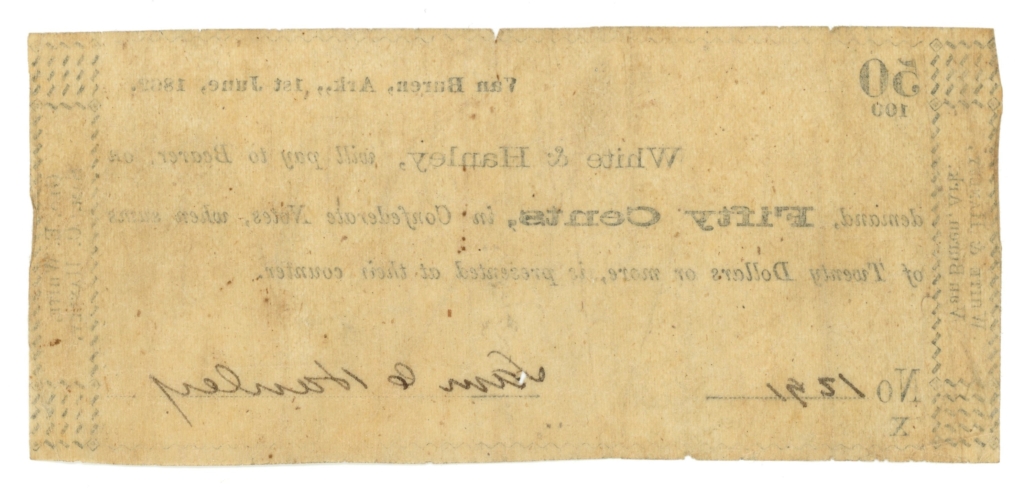 50
100
Van Buren, Ark., 1st June, 1862.
White & Hanley, will pay to Bearer, on
demand, Fifty Cents, in Confederate Notes, when sums
of Twenty Dollars or more, is presented at their counter.
No 1291
Sam C Hanley
X
Van Buren, Ark.
White & Hanley